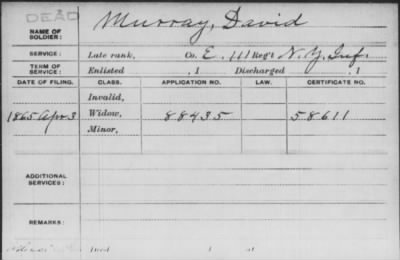 DEAD
NAME OF SOLDIER: Murray, David
SERVICE: Late rank, Co. E, 111 Reg't N.Y. Inf.
TERM OF SERVICE: Enlisted , 1 Discharged , 1
DATE OF FILING. CLASS. APPLICATION NO. LAW. CERTIFICATE NO.
Invalid,
1865 Apr 3 Widow, 88435 58611
Minor,
ADDITIONAL SERVICES:
REMARKS:
Died , 1 at